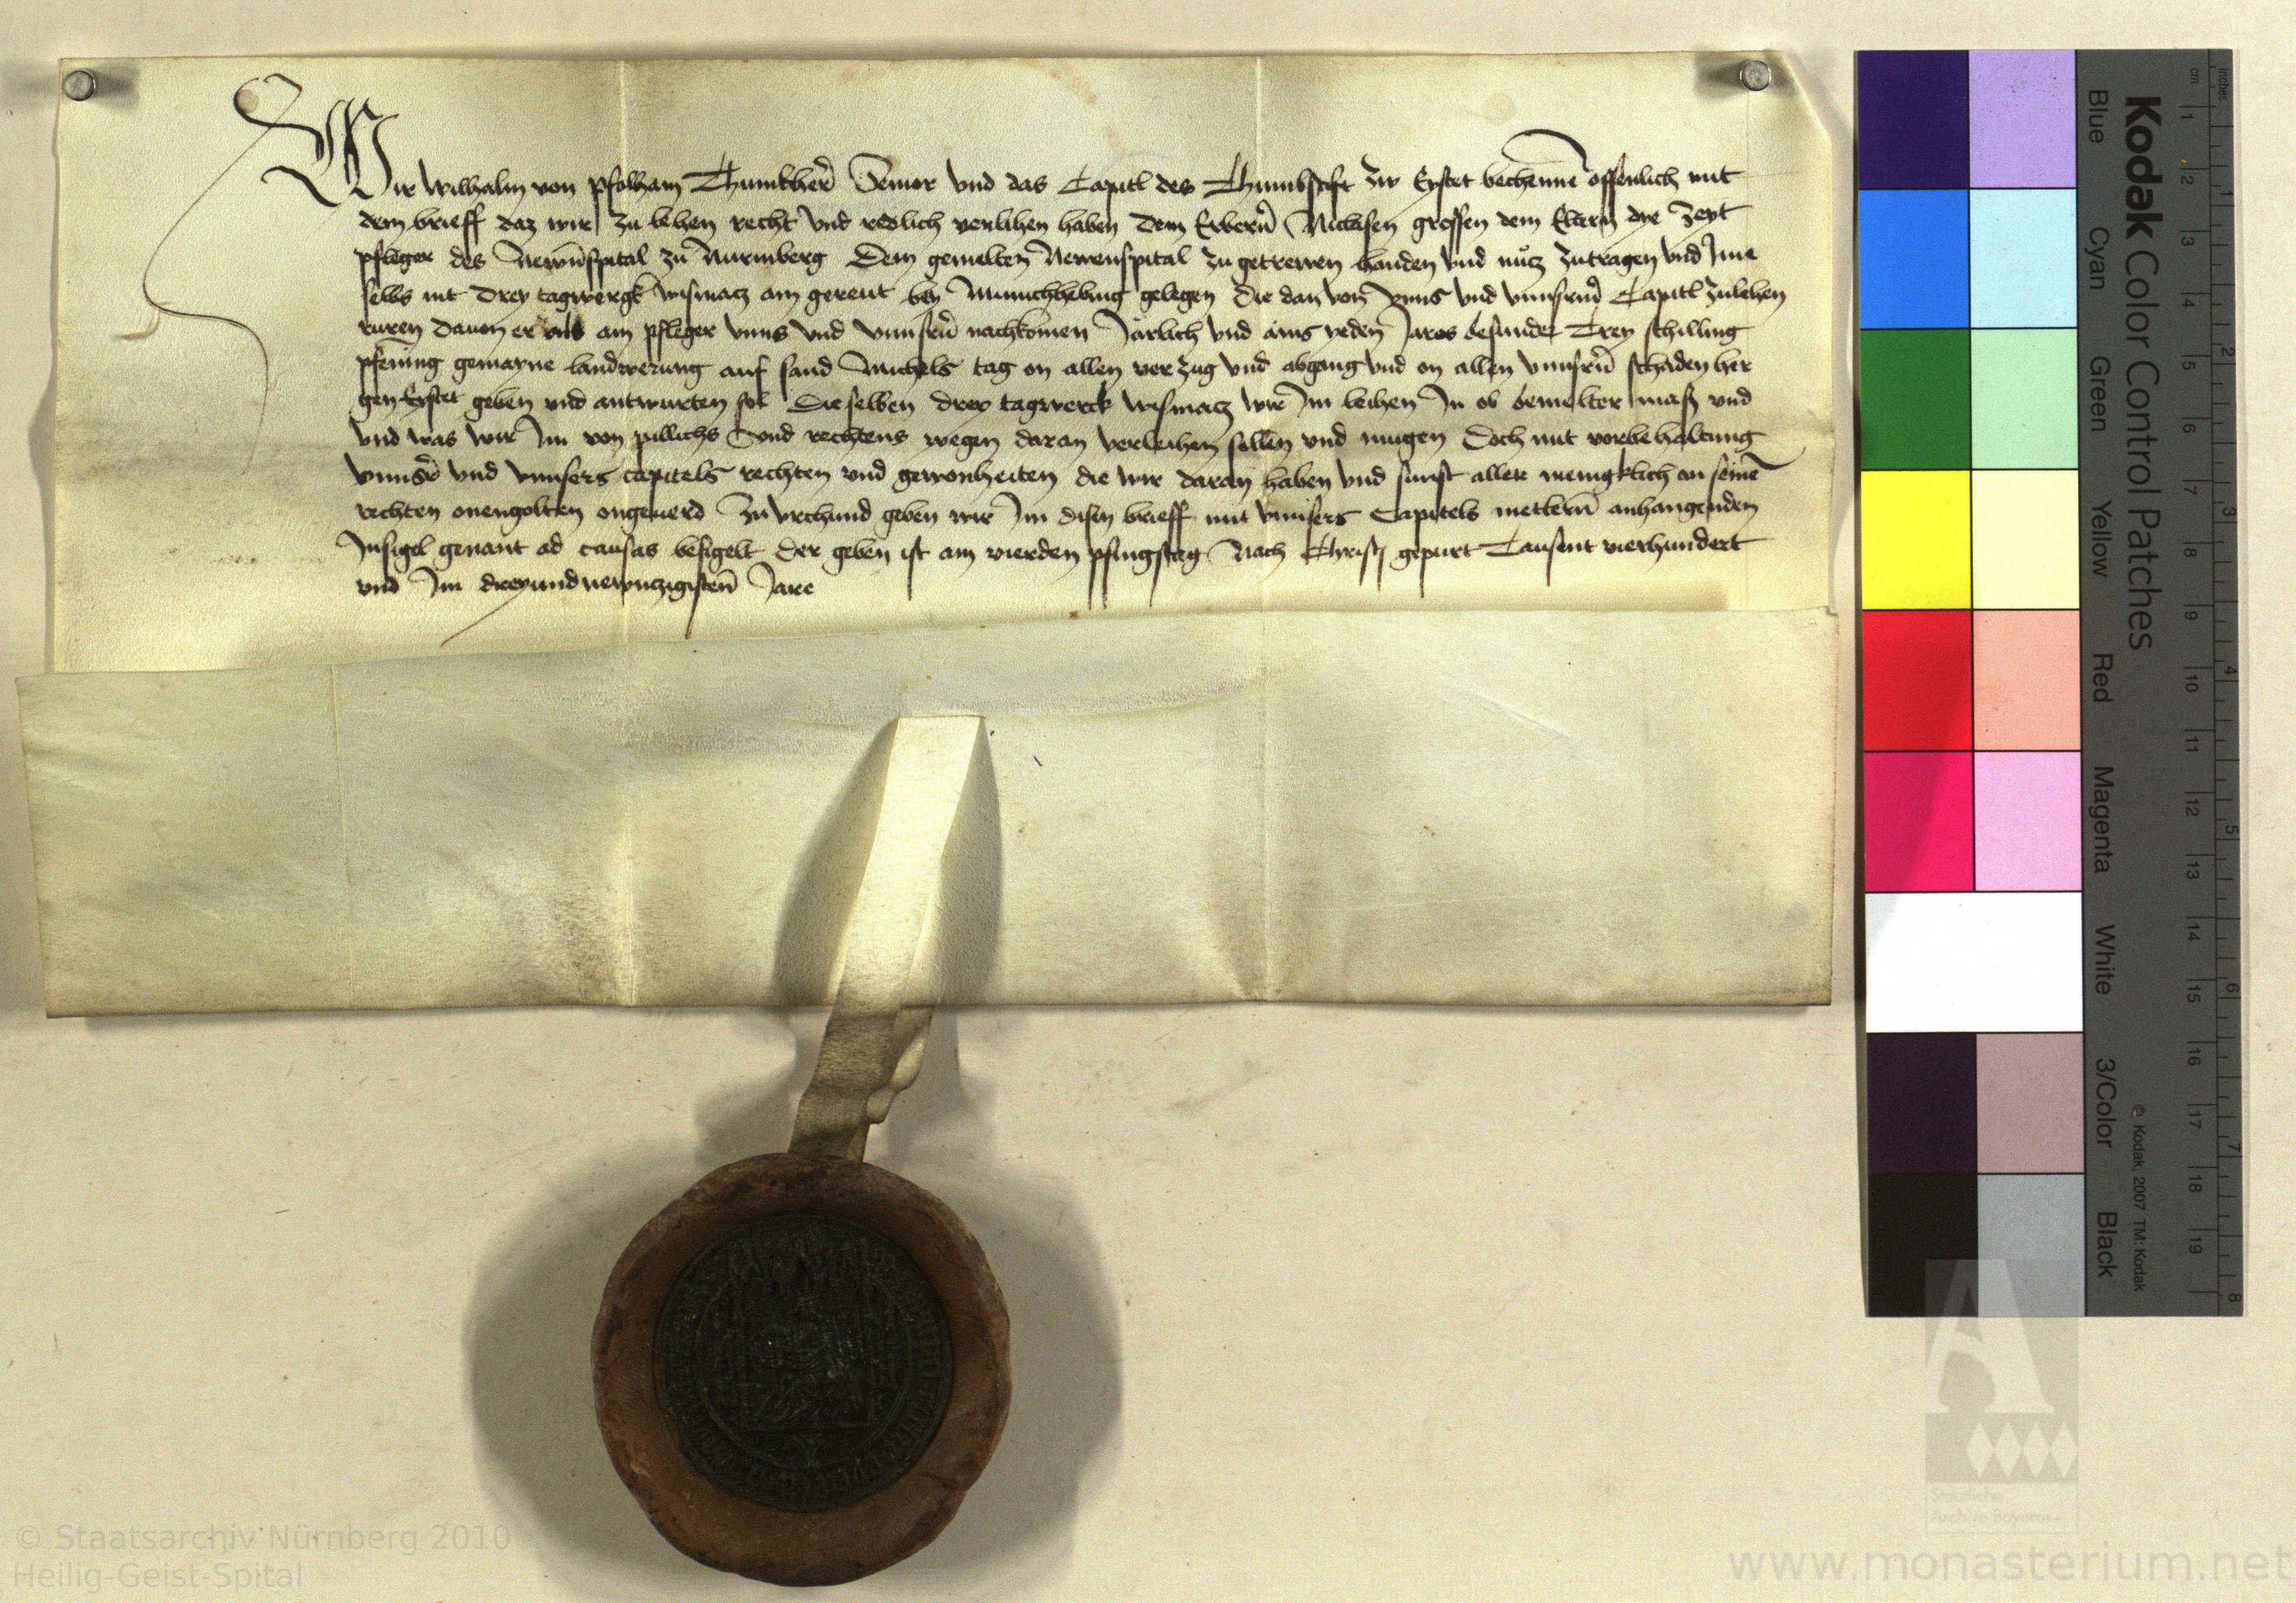 Wir Wilhalm von Pfolham Thumbher̃ Senior vnd das Capitl des Thumbstift zw Eystet bechenne͂ offenlich mit
dem brieff daz wir zu lehen recht vnd redlich verlihen haben Dem Erberñ Niclasen grossen dem Eltern die Zeyt
pfleger des Newn̄spital zu Nurmberg Dem gemelten Newenspital zu getrewen handen vnd nůcz zutragen vnd Jme
selbs nit Drey tagwergk wismacz am gereut bey gelegen die dan von vnns vnd vnnsrm̃ Capitl zulehen
ruren dauon er als ain pfleger vnns vnd vnnsrñ nachkomen Järlich vnd ains yeden Jares besunder Drey schilling
pfening gemayne landwerung auf sand Michels tag on allen verzug vnd abgang vnd on allen vnnsrñ schaden her
gen Eystet geben vnd antwurten sol Dieselben drey tagwerck wismacz wir Im leihen In ob bemelter mass vnd
vnd was wir Im von pillichs vnd rechtens wegen daran verleihen sollen vnd mugen Doch mit vorbehaltung
vnnsr̃ vnd vnnsers capitels rechten vnd gewonheiten die wir daran haben vnd sunst aller menigklich an seine͂
rechten onengolten ongeuerd Zu vrchund geben wir Im disen brieff mit vnnsers Capitels anhangenden
Insigel genant ad causas besigelt Der geben ist am vierden pfingstag Nach Christi gepurt Tausent vierhundert
vnd Im dreyundnewnczigisten̄ Jare
Kodak Color Control Patches
Blue Cyan Green Yellow Red Magenta White 3/Color Black
© Kodak, 2007 TM: Kodak
cm 1 2 3 4 5 6 7 8 9 10 11 12 13 14 15 16 17 18 19
inches 1 2 3 4 5 6 7 8
© Staatsarchiv Nürnberg 2010
Heilig-Geist-Spital
Staatliche
Archive Bayerns
www.monasterium.net